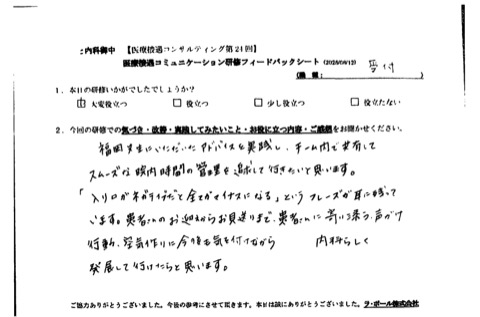 内科御中 【医療接遇コンサルティング第24回】
医療接遇コミュニケーション研修フィードバックシート (2025/08/12)
(職種: 受付 )
1. 本日の研修いかがでしたでしょうか?
大変役立つ □ 役立つ □ 少し役立つ □ 役立たない
2. 今回の研修での気づき・改善・実践してみたいこと・お役に立つ内容・ご感想をお聞かせください。
福岡先生にいただいたアドバイスを実践し、チーム内で共有して
スムーズな院内時間の管理を追求して行きたいと思います。
「入り口がネガティブだと全てがマイナスになる」というフレーズが耳に残って
います。患者さんのお迎えからお見送りまで、患者さんに寄り添う、声がけ
行動、空気作りに今後も気を付けながら 内科らしく
発展して行けたらと思います。
ご協力ありがとうございました。今後の参考にさせて頂きます。本日は誠にありがとうございました。ラ・ポール株式会社